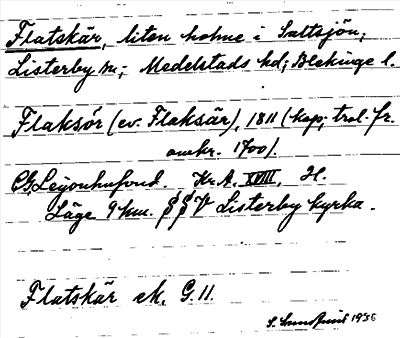 Flatskär, liten holme i Saltsjön;
Listerby sn; Medelstads hd; Blekinge l.
Flaksör (ev. Flaksär), 1811 (kop; trol. fr.
omkr. 1700).
CG Leijonhufvud. Kr. A. XVIII, H.
Läge 9 km. SSV Listerby kyrka.
Flatskär ek. G. 11.
1936